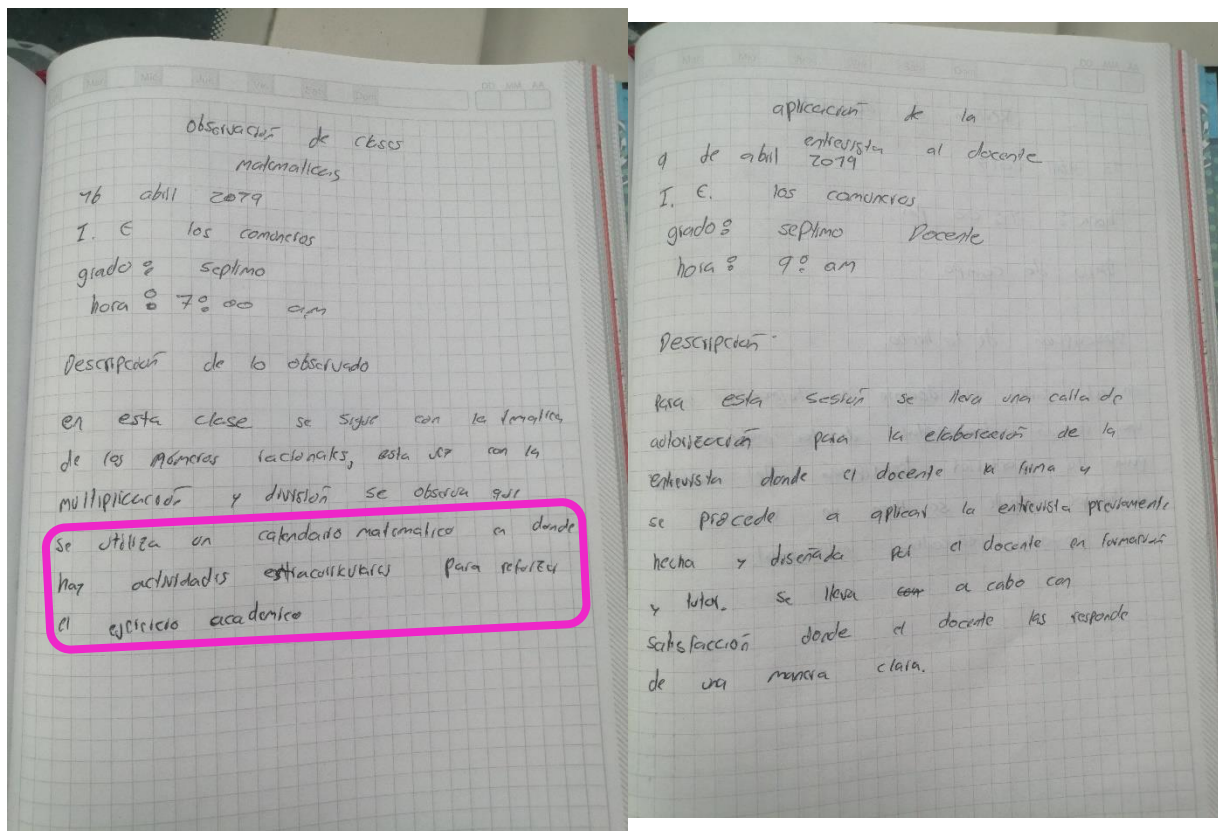 Observación de clases
matematicas
16 abril 2019
I. E los comuneros
grado: septimo
hora: 7:00 am
Descripción de lo observado
en esta clase se sigue con la tematica
de los números racionales, esta vez con la
multiplicación y división se observa que
se utiliza un calendario matematico en donde
hay actividades extracurriculares para reforzar
el ejercicio academico
aplicación de la
entrevista al docente
9 de abril 2019
I. E. los comuneros
grado: septimo Docente
hora: 9: am
Descripción
para esta sesión se lleva una carta de
autorización para la elaboración de la
entrevista donde el docente la firma y
se procede a aplicar la entrevista previamente
hecha y diseñada por el docente en formación
y tutor. se lleva a cabo con
satisfacción donde el docente las responde
de una manera clara.